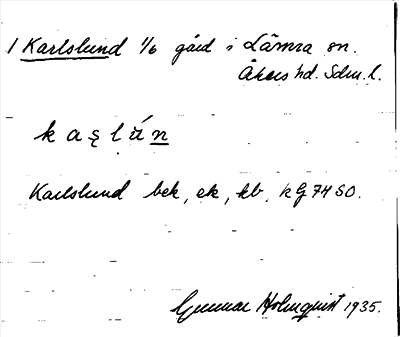 1 Karlslund 1/6 gård i Länna sn.
Åkers hd. Sdm. l.
k a ʂ l ú n
Karlslund bek, ek, kb, kG 74 SO.
Gunnar Holmquist 1935.